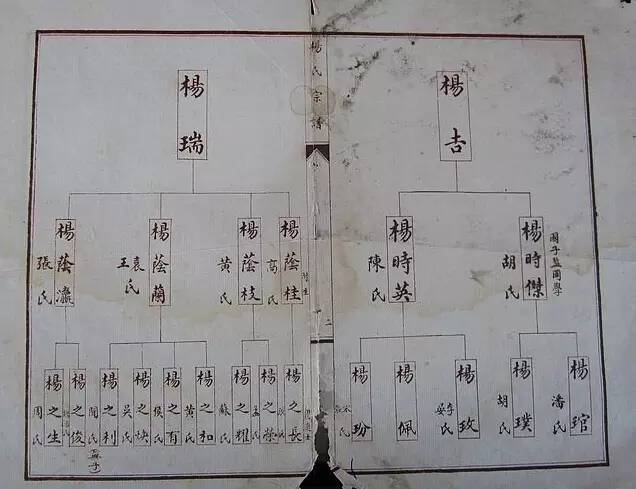 楊氏宗譜
二
楊吉
楊時傑
胡氏
國子監同學
楊時英
陳氏
楊琯
潘氏
楊璞
胡氏
楊玫
李氏
楊佩
楊玢
氏
楊瑞
楊蔭桂
高氏
楊蔭枝
黄氏
楊蔭蘭
袁氏
王
楊蔭瀛
張氏
楊之長
楊之榮
孟氏
楊之耀
蘇氏
楊之和
黄氏
楊之有
侯氏
楊之煥
吳氏
楊之利
閻氏
楊之俊
楊之生
周氏